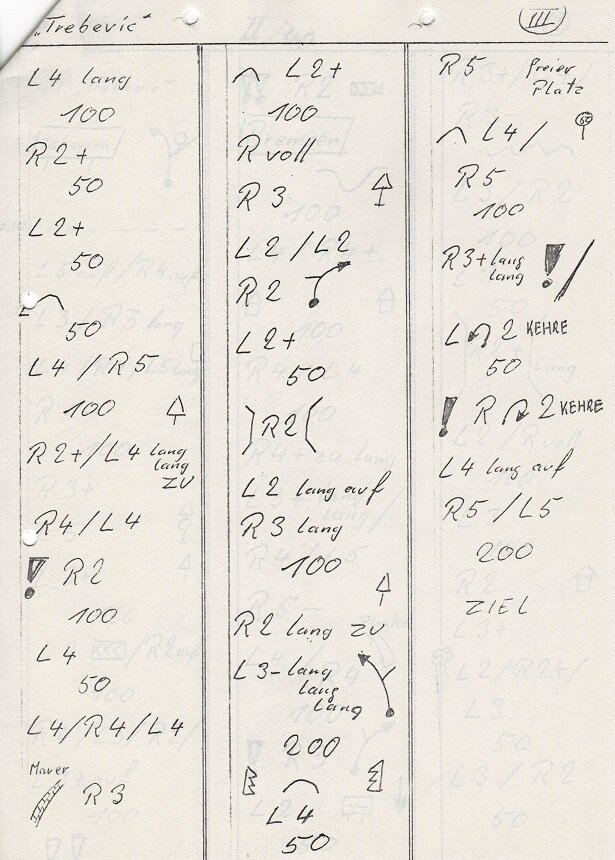 „Trebevic“
III
L4 lang
100
R2+
50
L2+
50
50
L4 / R5
100
R2+/L4 lang
lang
zu
R4/L4
! R2
100
L4
50
L4/R4/L4
Mauer
R3
L2+
100
R voll
R3
L2/L2
R2
L2+
50
)R2(
L2 lang auf
R3 lang
100
R2 lang zu
L3-lang
lang
lang
200
L4
50
R5 freier
Platz
L4/
R5
100
R3+lang !/
lang
L 2 KEHRE
50
! R 2 KEHRE
L4 lang auf
R5/L5
200
ZIEL